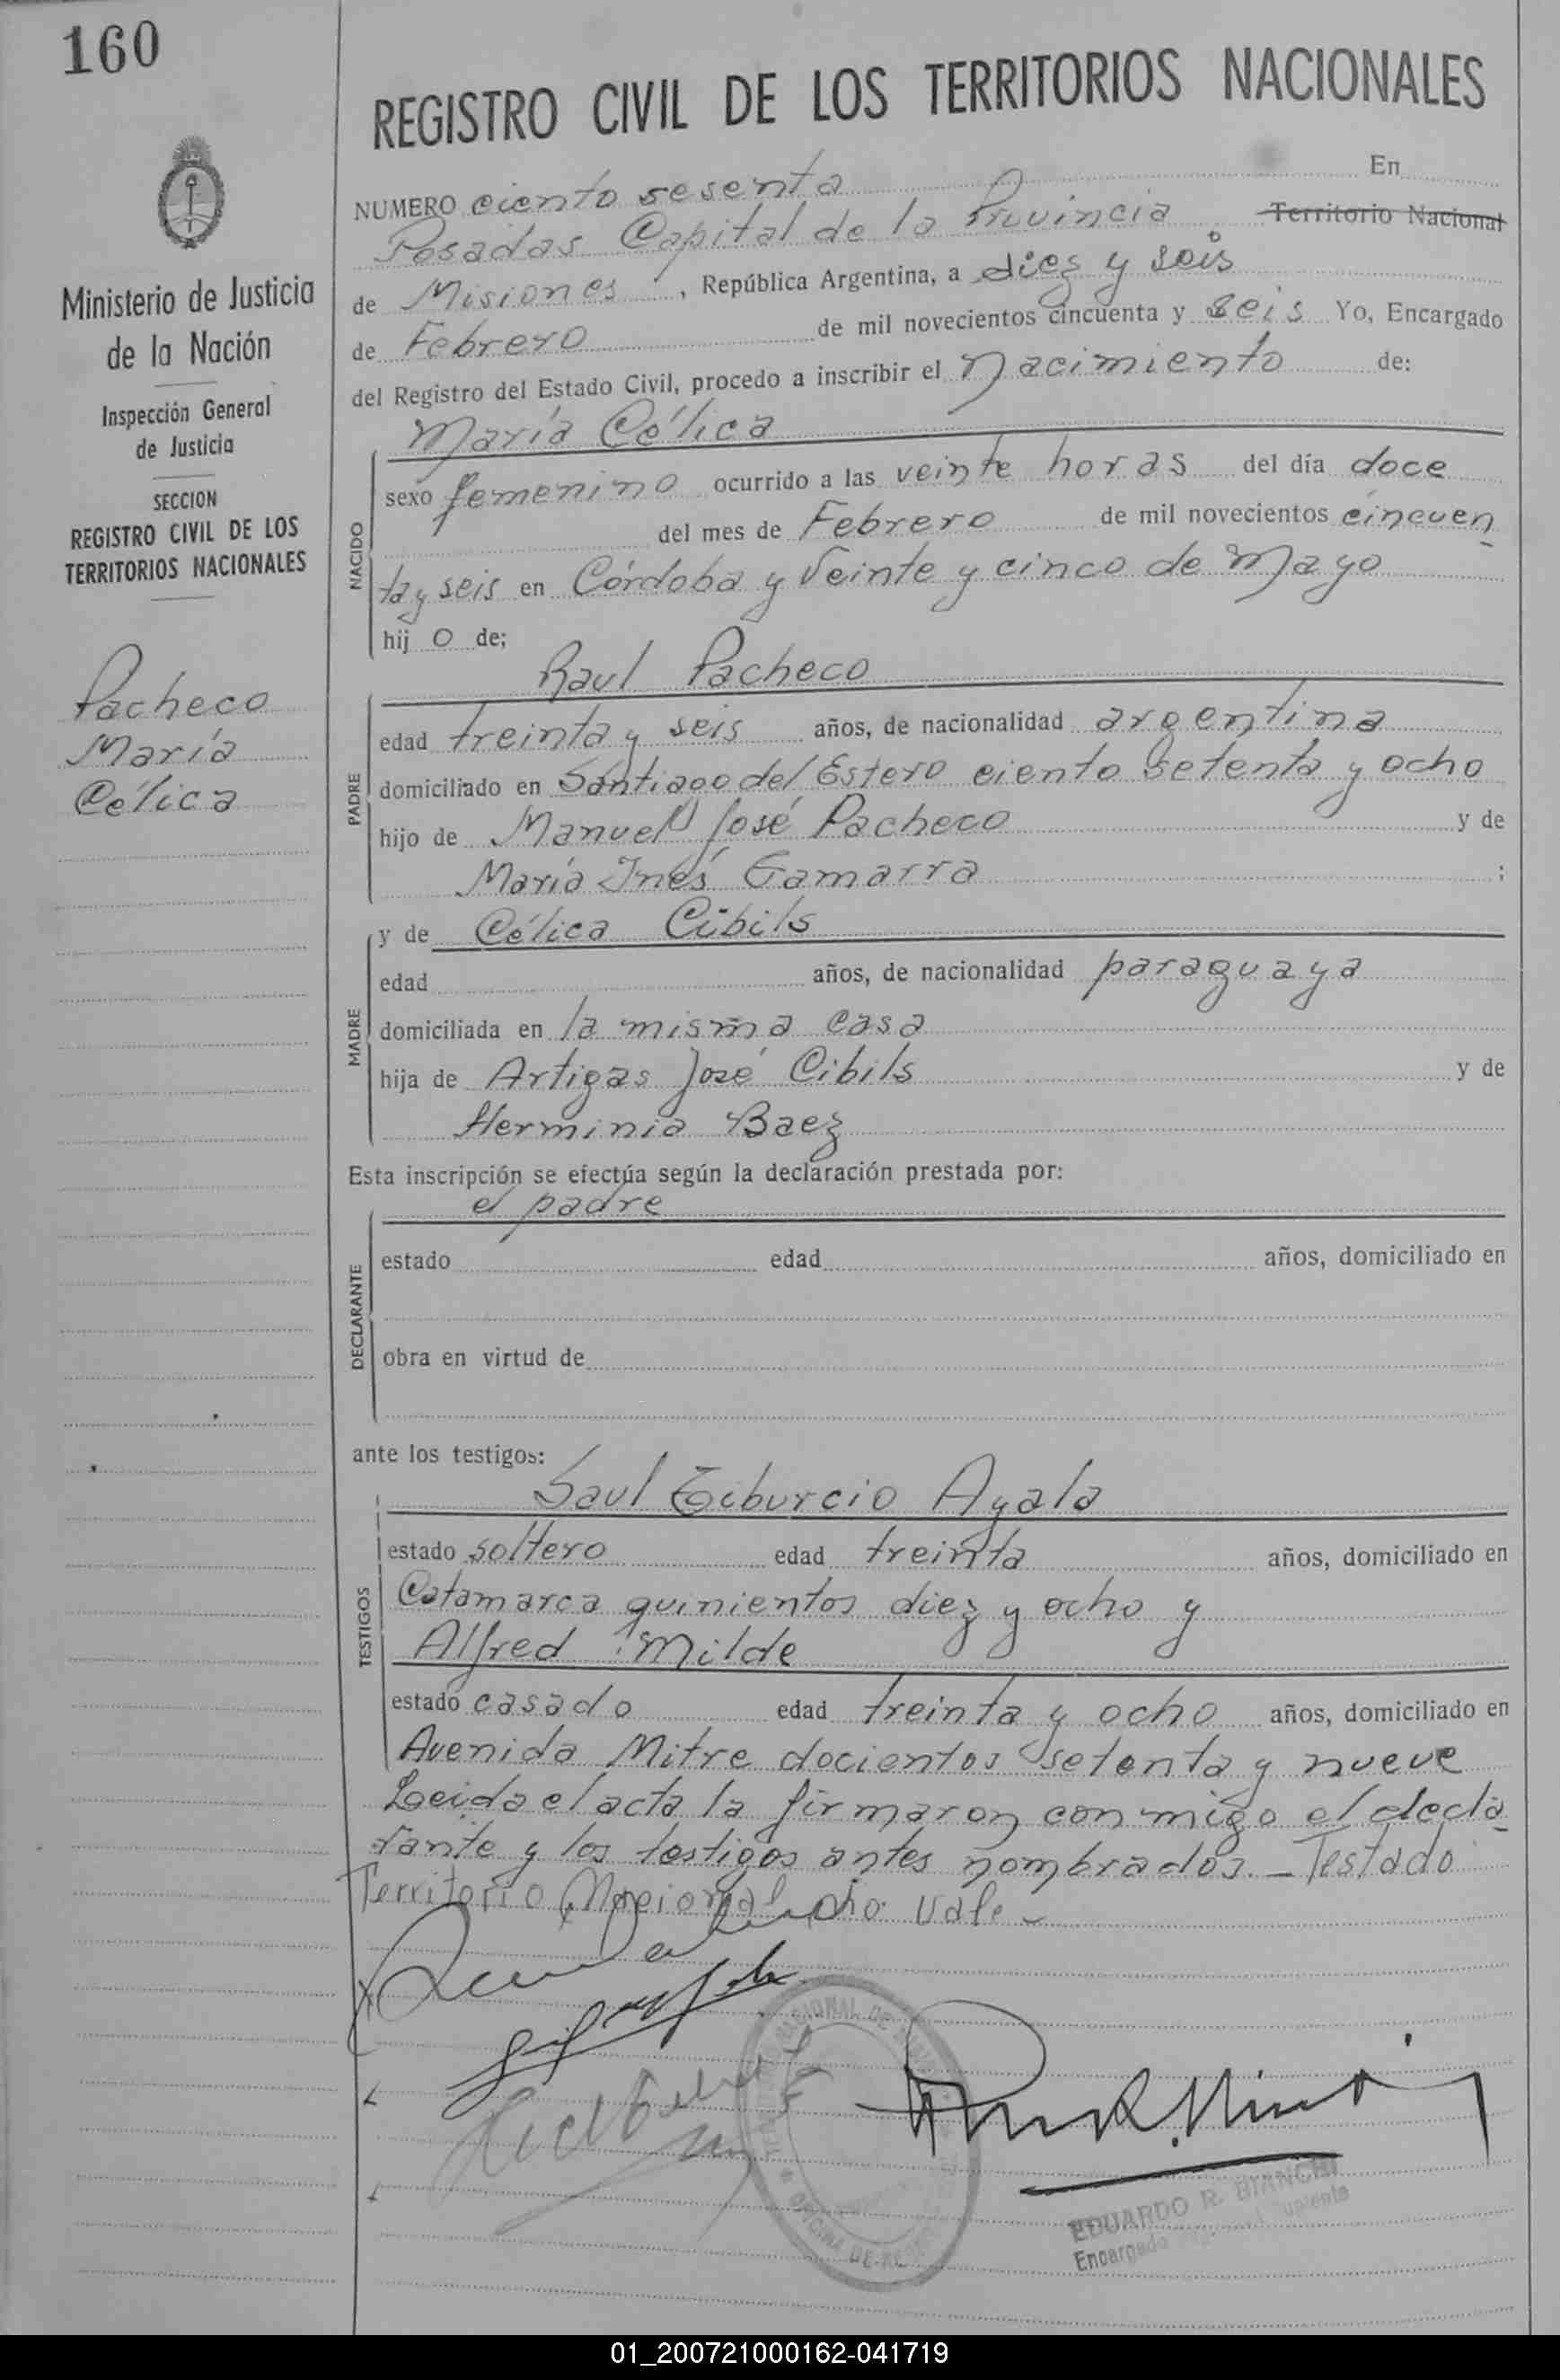 160
REGISTRO CIVIL DE LOS TERRITORIOS NACIONALES
Ministerio de Justicia
de la Nación
Inspección General
de Justicia
SECCION
REGISTRO CIVIL DE LOS
TERRITORIOS NACIONALES
Pacheco
María
Célica
NUMERO ciento sesenta En
Posadas Capital de la Provincia Territorio Nacional
de Misiones, República Argentina, a diez y seis
de Febrero de mil novecientos cincuenta y seis Yo, Encargado
del Registro del Estado Civil, procedo a inscribir el Nacimiento de:
María Célica
NACIDO
sexo femenino ocurrido a las veinte horas del día doce
del mes de Febrero de mil novecientos cincuen
ta y seis en Córdoba y Veinte y cinco de Mayo
hij o de;
Raul Pacheco
PADRE
edad treinta y seis años, de nacionalidad argentina
domiciliado en Santiago del Estero ciento setenta y ocho
hijo de Manuel José Pacheco y de
María Inés Gamarra ;
MADRE
y de Célica Cibils
edad años, de nacionalidad paraguaya
domiciliada en la misma casa
hija de Artigas José Cibils y de
Herminia Baez
Esta inscripción se efectúa según la declaración prestada por:
el padre
DECLARANTE
estado edad años, domiciliado en
obra en virtud de
ante los testigos:
Saul Tiburcio Ayala
TESTIGOS
estado soltero edad treinta años, domiciliado en
Catamarca quinientos diez y ocho y
Alfred Milde
estado casado edad treinta y ocho años, domiciliado en
Avenida Mitre docientos setenta y nueve
Leida el acta la firmaron conmigo el decla
rante y los testigos antes nombrados. - Testado
Territorio Nacional no Vale -
EDUARDO R. BIANCHI
Encargado
OFICINA DE
01_200721000162-041719